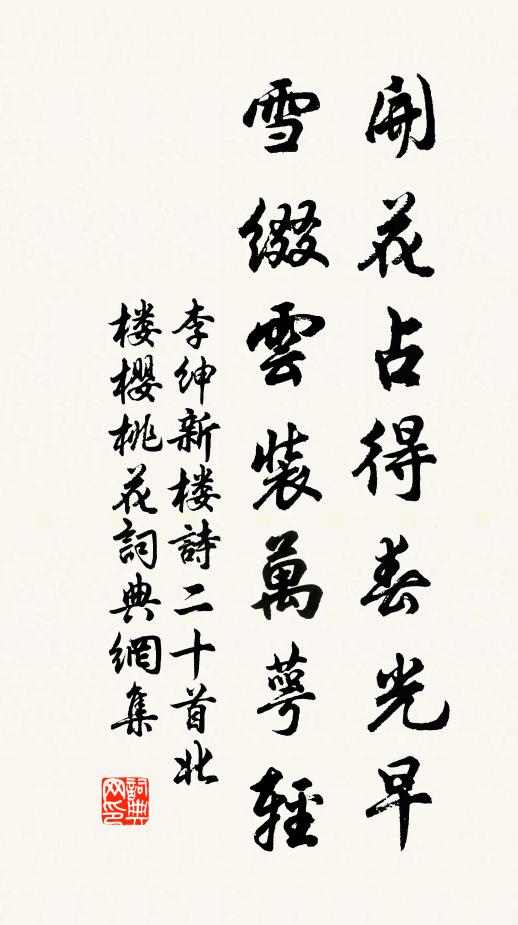 開花占得春光早
雪綴雲裝萬萼輕
李紳新楼詩二十首北
楼櫻桃花詞典網集
詞典
网印